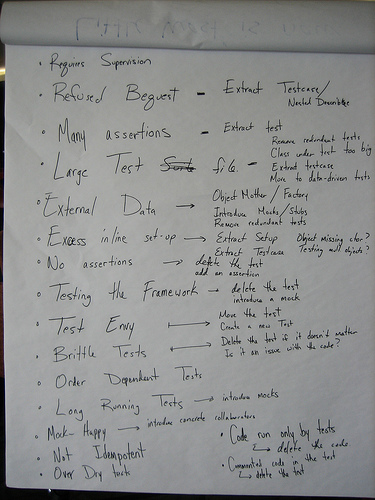 • Requires Supervision
• Refused Bequest - Extract Testcase/
Nested Describe
• Many assertions - Extract test
Remove redundant tests
Class under test too big
• Large Test file - Extract testcase
Move to data-driven tests
• External Data → Object Mother / Factory
Introduce Mocks/Stubs
Remove redundant tests
• Excess inline set-up → Extract Setup Object missing ctor?
Extract Testcase Testing null objects?
• No assertions → delete the test
add an assertion
• Testing the Framework → delete the test
introduce a mock
• Test Envy → Move the test
Create a new Test
• Brittle Tests → Delete the test if it doesn't matter
Is it an issue with the code?
• Order Dependent Tests
• Long Running Tests → introduce mocks
• Mock-Happy → introduce concrete collaborators
• Not Idempotent
• Over Dry tests
• Code run only by tests
→ delete the code
• Commented code in the test
→ delete the test